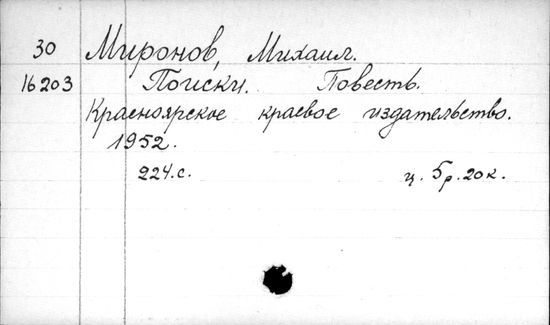 30 Миронов, Михаил.
16203 Поиски. Повесть.
Красноярское краевое издательство.
1952.
224.с. ц. 5р.20к.